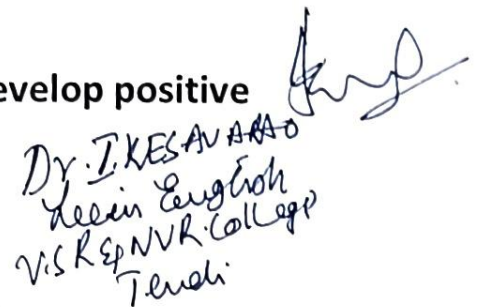 evelop positive
Dr. I. KESAVARAO
Lecin English
V.S R & NVR. College
Tenali